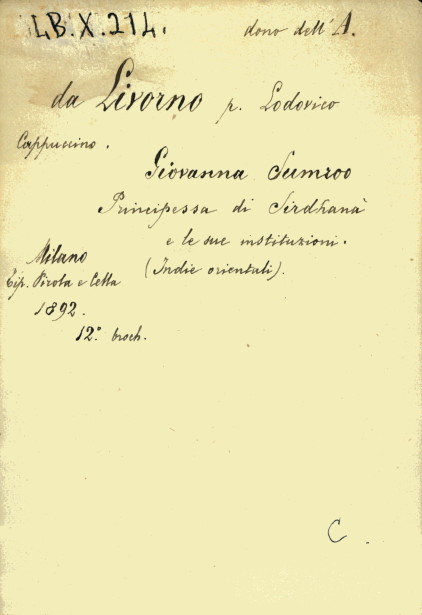 LB.X.214.
dono dell'A.
da Livorno p. Lodovico
Cappuccino.
Giovanna Sumroo
Principessa di Sirdhanà
e le sue instituzioni.
(Indie orientali).
Milano
Tip. Pirola e Cella
1892.
12.° broch.
C.